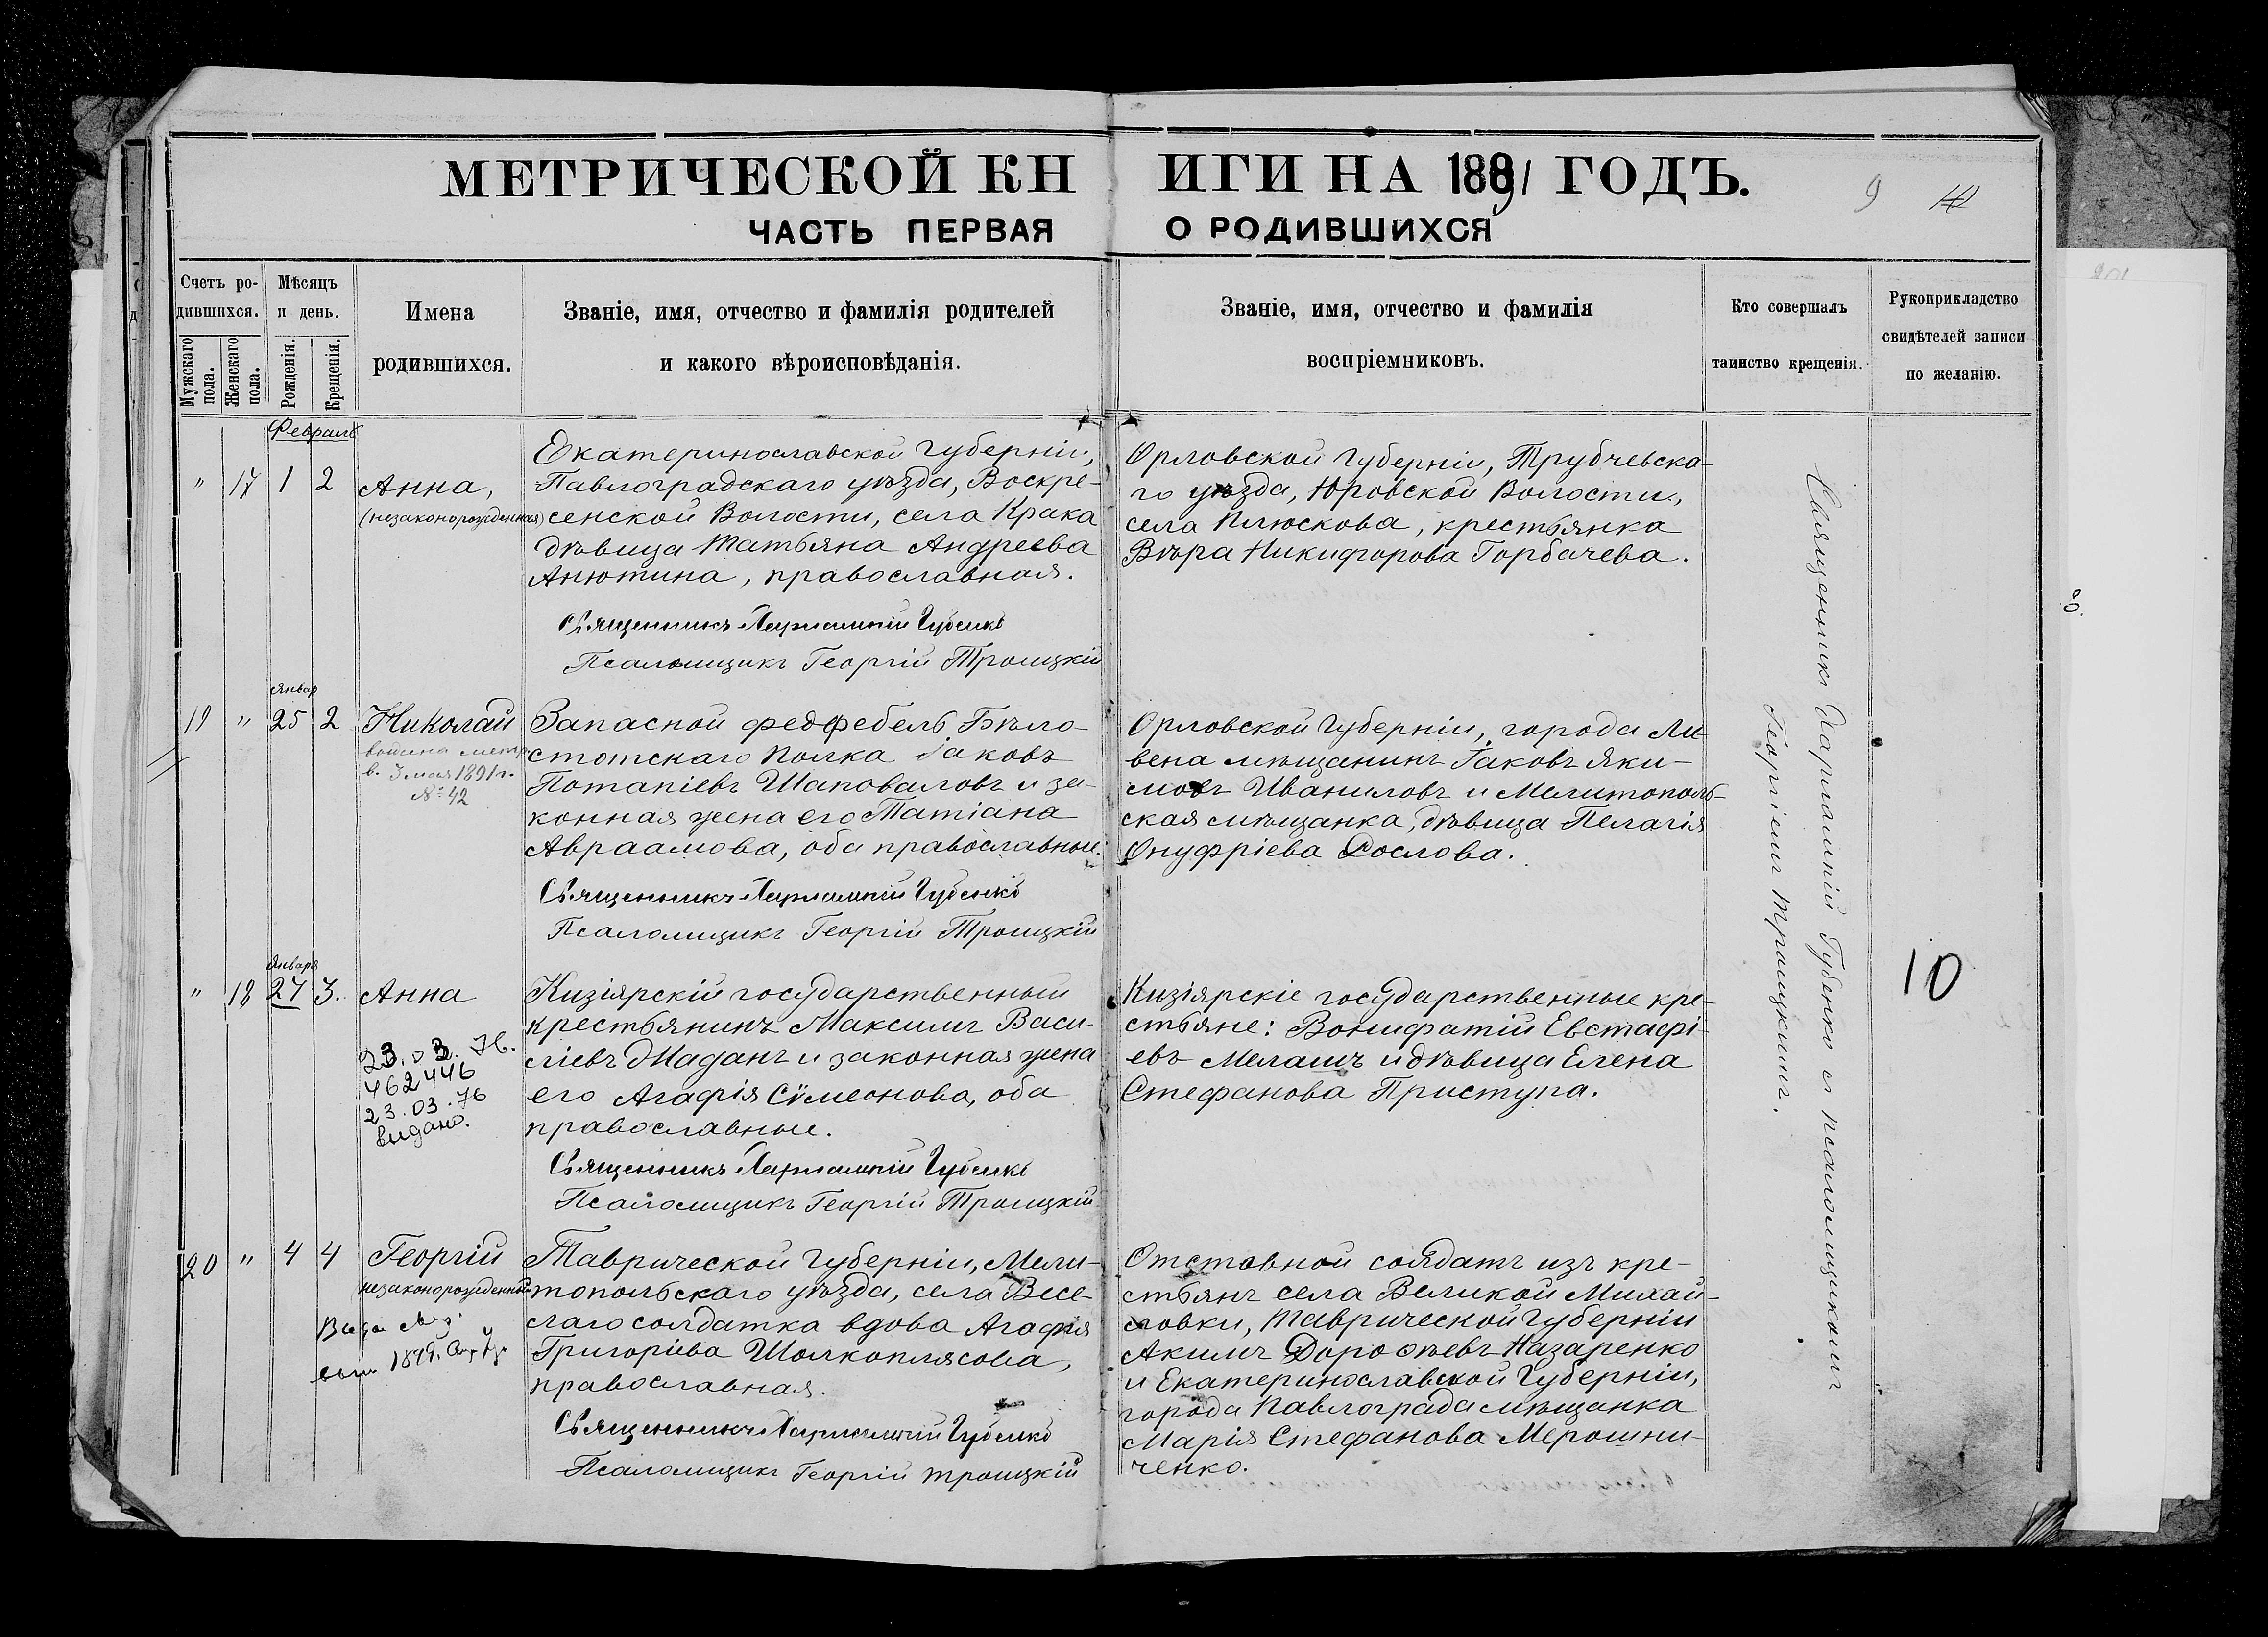 МЕТРИЧЕСКОЙ КНИГИ НА 1891 ГОДЪ.
9
ЧАСТЬ ПЕРВАЯ О РОДИВШИХСЯ
Счетъ ро-
дившихся.
Мужскаго пола.
Женскаго пола.
Мѣсяцъ
и день.
Рожденія.
Крещенія.
Имена
родившихся.
Званіе, имя, отчество и фамилія родителей
и какого вѣроисповѣданія.
Званіе, имя, отчество и фамилія
воспріемниковъ.
Кто совершалъ
таинство крещенія.
Рукоприкладство
свидѣтелей записи
по желанію.
Февраль
" 17 1 2 Анна,
(незаконорожденная)
Екатеринославской Губерніи,
Павлоградскаго уѣзда, Воскре-
сенской Волости, села Крака
дѣвица Татьяна Андреева
Анютина, православная.
Священникъ Харлампій Губенко
Псаломщикъ Георгій Троицкій
Орловской Губерніи, Трубчевска-
го уѣзда, Юровской Волости,
села Плюскова, крестьянка
Вѣра Никифорова Горбачева.
Январ
19 " 25 2 Николай
метр.
в. 3 мая 1891 г.
№ 42
Запасной федфебель Бѣло-
стотскаго Полка Іаковъ
Потапіевъ Шаповаловъ и за-
конная жена его Татіана
Авраамова, оба православные.
Священникъ Харлампій Губенко
Псаломщикъ Георгій Троицкій
Орловской Губерніи, города Ли-
вена мѣщанинъ Іаковъ Яки-
мовъ Иваниловъ и Мелитополь-
ская мѣщанка, дѣвица Пелагія
Онуфріева Рослова.
Января
" 18 27 3. Анна
23.03.76.
462446
23.03.76
видано.
Кизіярскій государственный
крестьянинъ Максимъ Васи-
ліевъ Маданъ и законная жена
его Агафія Сѵмеонова, оба
православные.
Священникъ Харлампій Губенко
Псаломщикъ Георгій Троицкій
Кизіярскіе государственные кре-
стьяне: Вонифатій Евстафі-
евъ Мелашъ и дѣвица Елена
Стефанова Приступа.
20 " 4 4 Георгій
незаконорожденный
Таврической Губерніи, Мели-
топольскаго уѣзда, села Весе-
лаго солдатка вдова Агафія
Григоріева Шолкоплясова,
православная.
Священникъ Харлампій Губенко
Псаломщикъ Георгій Троицкій
Отставной солдатъ изъ кре-
стьянъ села Великой Михай-
ловки, Таврической Губерніи
Акимъ Дороѳѣевъ Назаренко
и Екатеринославской Губерніи,
города Павлограда мѣщанка
Марія Стефанова Мерошни-
ченко.
Священникъ Харлампій Губенко съ псаломщикомъ
Георгіемъ Троицкимъ.
10